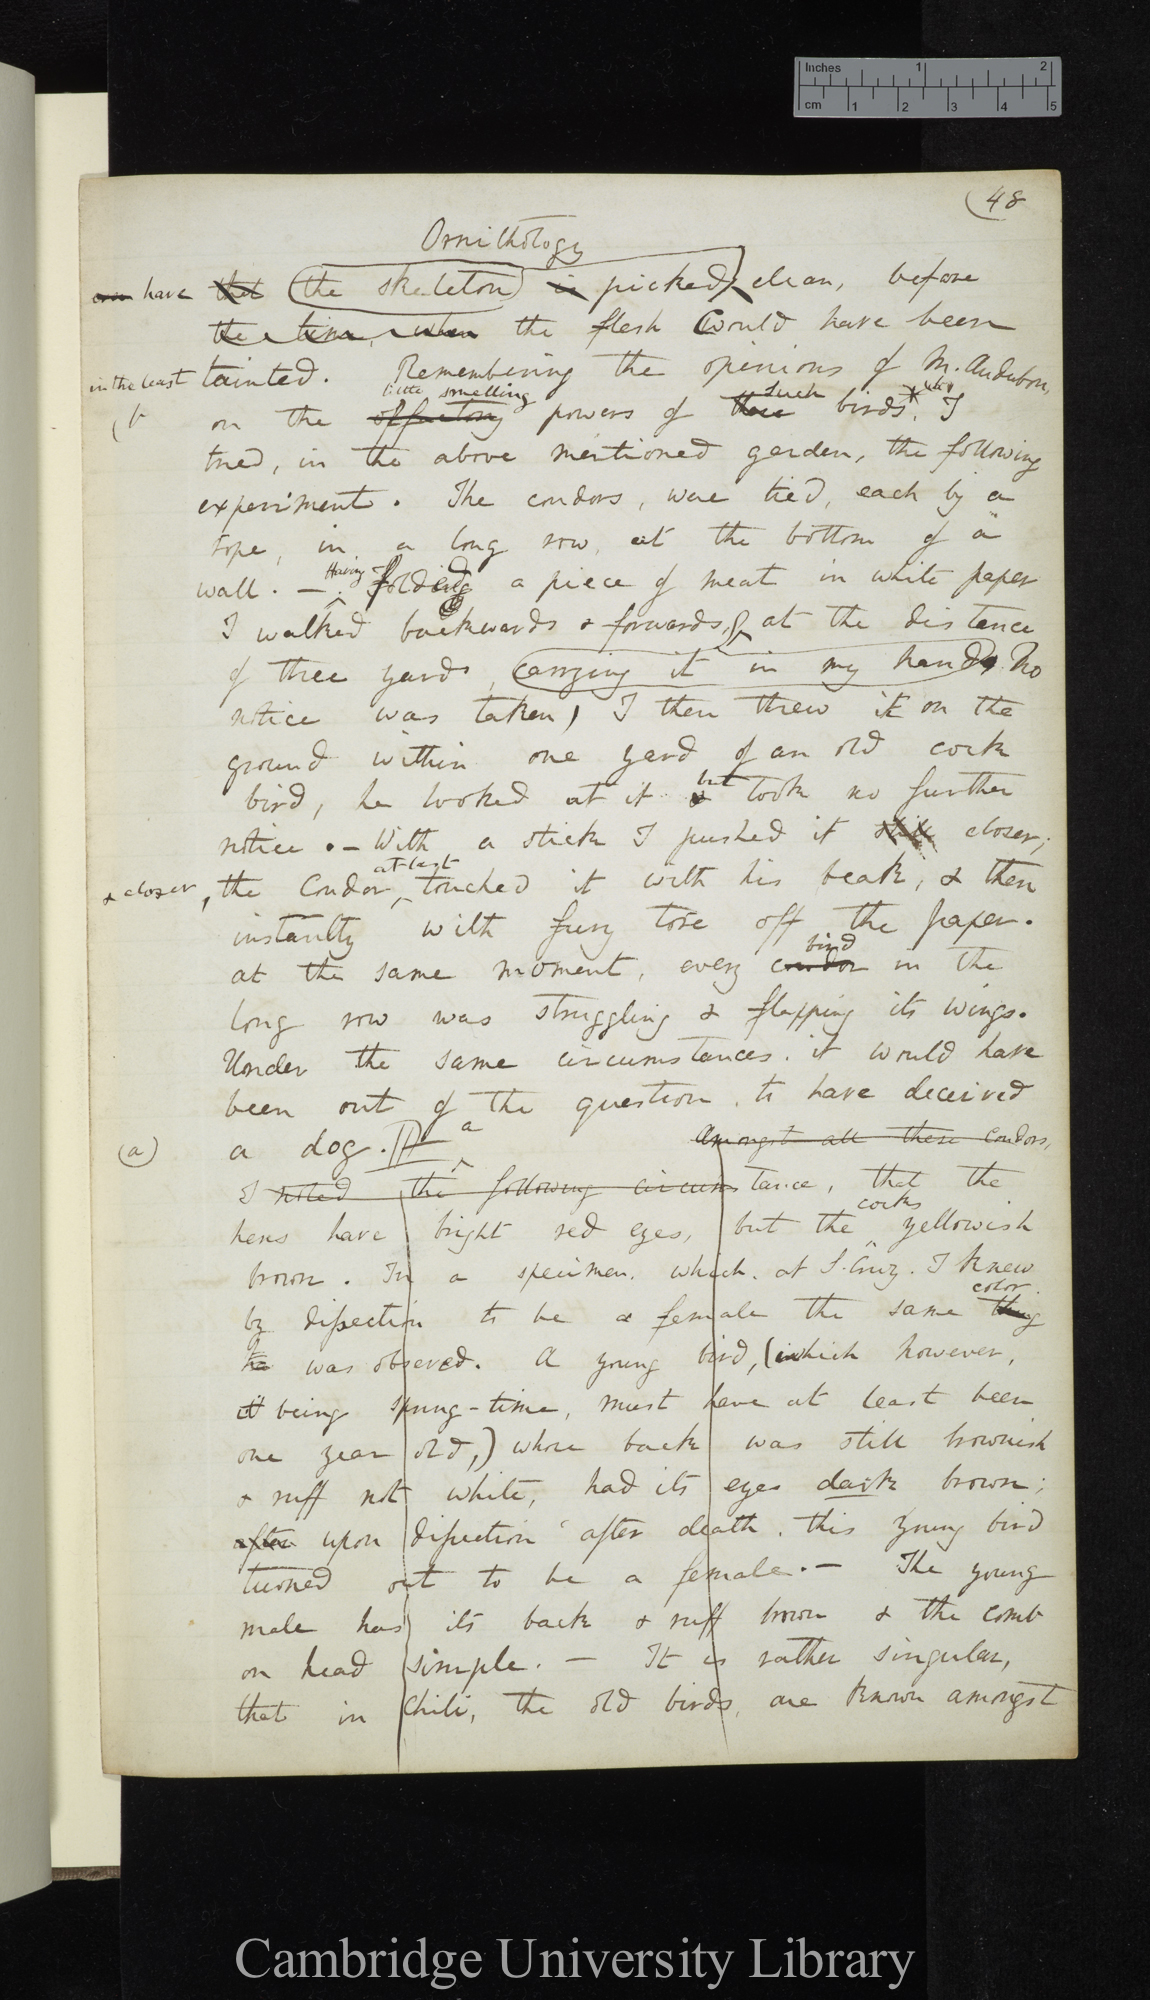 Inches 1 2
cm 1 2 3 4 5
48
Ornithology
have that the skeleton is picked clean, before
the time, when the flesh Would have been
in the least tainted. Remembering the opinions of M. Audubon,
little smelling such
on the olfactory powers of these birds, I
tried, in the above mentioned garden, the following
experiment. The condors, were tied, each by a
rope, in a long row, at the bottom of a
wall. — Having folding a piece of meat in white paper
I walked backwards & forwards, at the distance
of three yards, carrying it in my hand, No
notice was taken, I then threw it on the
ground within one yard of an old cock
but
bird, he looked at it & took no further
notice. — With a stick I pushed it still closer;
at last
& closer, the Condor, touched it with his beak, & then
instantly with fury tore off the paper.
bird
at the same moment, every condor in the
long row was struggling & flapping its wings.
Under the same circumstances. it would have
been out of the question. to have deceived
(a) a dog. a Amongst all these Condors,
I noted the following circumstance, that the
cocks
hens have bright red eyes, but the yellowish
brown. In a specimen. which. at S. Cruz. I knew
color
by dissection to be a female the same thing
was observed. A young bird, (which however,
it being spring-time, must have at least been
one year old,) whose back was still brownish
& ruff not white, had its eyes dark brown;
after upon dissection after death. this young bird
turned out to be a female. — The young
male has its back & ruff brown & the comb
on head simple. — It is rather singular,
that in Chili, the old birds, are known amongst
Cambridge University Library